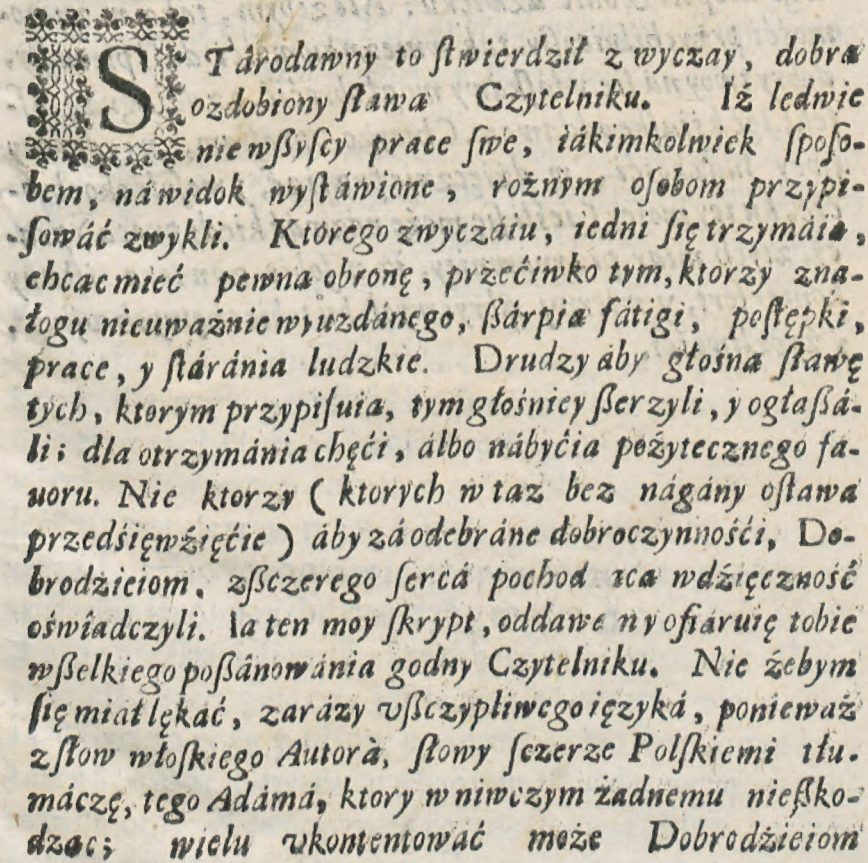 STárodawny to ſtwierdził zwyczay, dobra
ozdobiony ſława Czytelniku. Iż ledwie
nie wßyſcy prace ſwe, iákimkolwiek ſpoſo-
bem, náwidok wyſtáwione, rożnym oſobom przypi-
ſowáć zwykli. Ktorego zwyczáiu, iedni ſię trzymáia,
chcac mieć pewna obronę, przećiwko tym, ktorzy zna-
łogu nieuważnie wyuzdánego, ßárpia fátigi, poſtępki,
prace, y ſtáránia ludzkie. Drudzy áby głośna ſławę
tych, ktorym przypiſuia, tym głośniey ßerzyli, y ogłaßá-
li; dla otrzymánia chęći, álbo nábyćia pożytecznego fa-
uoru. Nie ktorzy ( ktorych w taz bez nágány oſtawa
przedśięwźięćie ) áby zá odebráne dobroczynnośći, Do-
brodźieiom, zßczerego ſercá pochod zca wdźięczność
oświadczyli. Ia ten moy ſkrypt, oddawe n y ofiáruię tobie
wßelkiego poßánowánia godny Czytelniku. Nie żebym
ſię miał lękać, zarázy vßczypliwego ięzyká, ponieważ
z ſłow włoſkiego Autorà, ſłowy ſczerze Polſkiemi tłu-
máczę, tego Adámá, ktory w niwczym żadnemu nießko-
dzac; wielu vkontentować może Dobrodźieiom